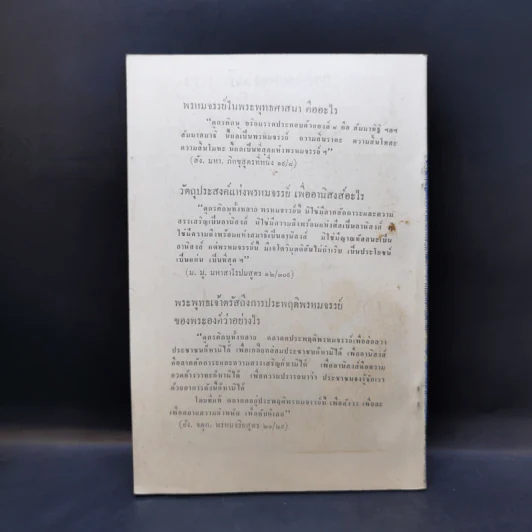 พรหมจรรย์ในพระพุทธศาสนา คืออะไร
"ดูกรภิกษุ อริยมรรคประกอบด้วยองค์ ๘ คือ สัมมาทิฐิ ฯลฯ
สัมมาสมาธิ นี้แลเป็นพรหมจรรย์ ความสิ้นราคะ ความสิ้นโทสะ
ความสิ้นโมหะ นี้แลเป็นที่สุดแห่งพรหมจรรย์ ฯ"
(สัง. มหา. ภิกขุสูตรที่หนึ่ง ๑๙/๘)
วัตถุประสงค์แห่งพรหมจรรย์ เพื่ออานิสงส์อะไร
"ดูกรภิกษุทั้งหลาย พรหมจรรย์นี้ มิใช่มีลาภสักการะและความ
สรรเสริญเป็นอานิสงส์ มิใช่มีความถึงพร้อมแห่งศีลเป็นอานิสงส์
ใช่มีความถึงพร้อมแห่งสมาธิเป็นอานิสงส์ มิใช่มีญาณทัสสนะเป็น
อานิสงส์ แต่พรหมจรรย์นี้ มีเจโตวิมุตติอันไม่กำเริบ เป็นประโยชน์
เป็นแก่น เป็นที่สุด ฯ"
(ม. มู. มหาสาโรปมสูตร ๑๒/๓๐๕)
พระพุทธเจ้าตรัสถึงการประพฤติพรหมจรรย์
ของพระองค์ว่าอย่างไร
"ดูกรภิกษุทั้งหลาย ตถาคตประพฤติพรหมจรรย์เพื่อ
ประชาชนก็หามิได้ เพื่อเกลี้ยกล่อมประชาชนก็หามิได้ เพื่ออานิสงส์
คือลาภสักการะและความสรรเสริญก็หามิได้ เพื่ออานิสงส์คือความ
อวดอ้างวาทะก็หามิได้ เพื่อความปรารถนาว่า ประชาชนจงรู้จักเรา
ด้วยอาการดังนี้ก็หามิได้
โดยที่แท้ ตถาคตอยู่ประพฤติพรหมจรรย์นี้ เพื่อสังวร เพื่อละ
เพื่อคลายความกำหนัด เพื่อดับกิเลส"
(อัง. จตุก. พรหมจริยสูตร ๒๑/๒๙)